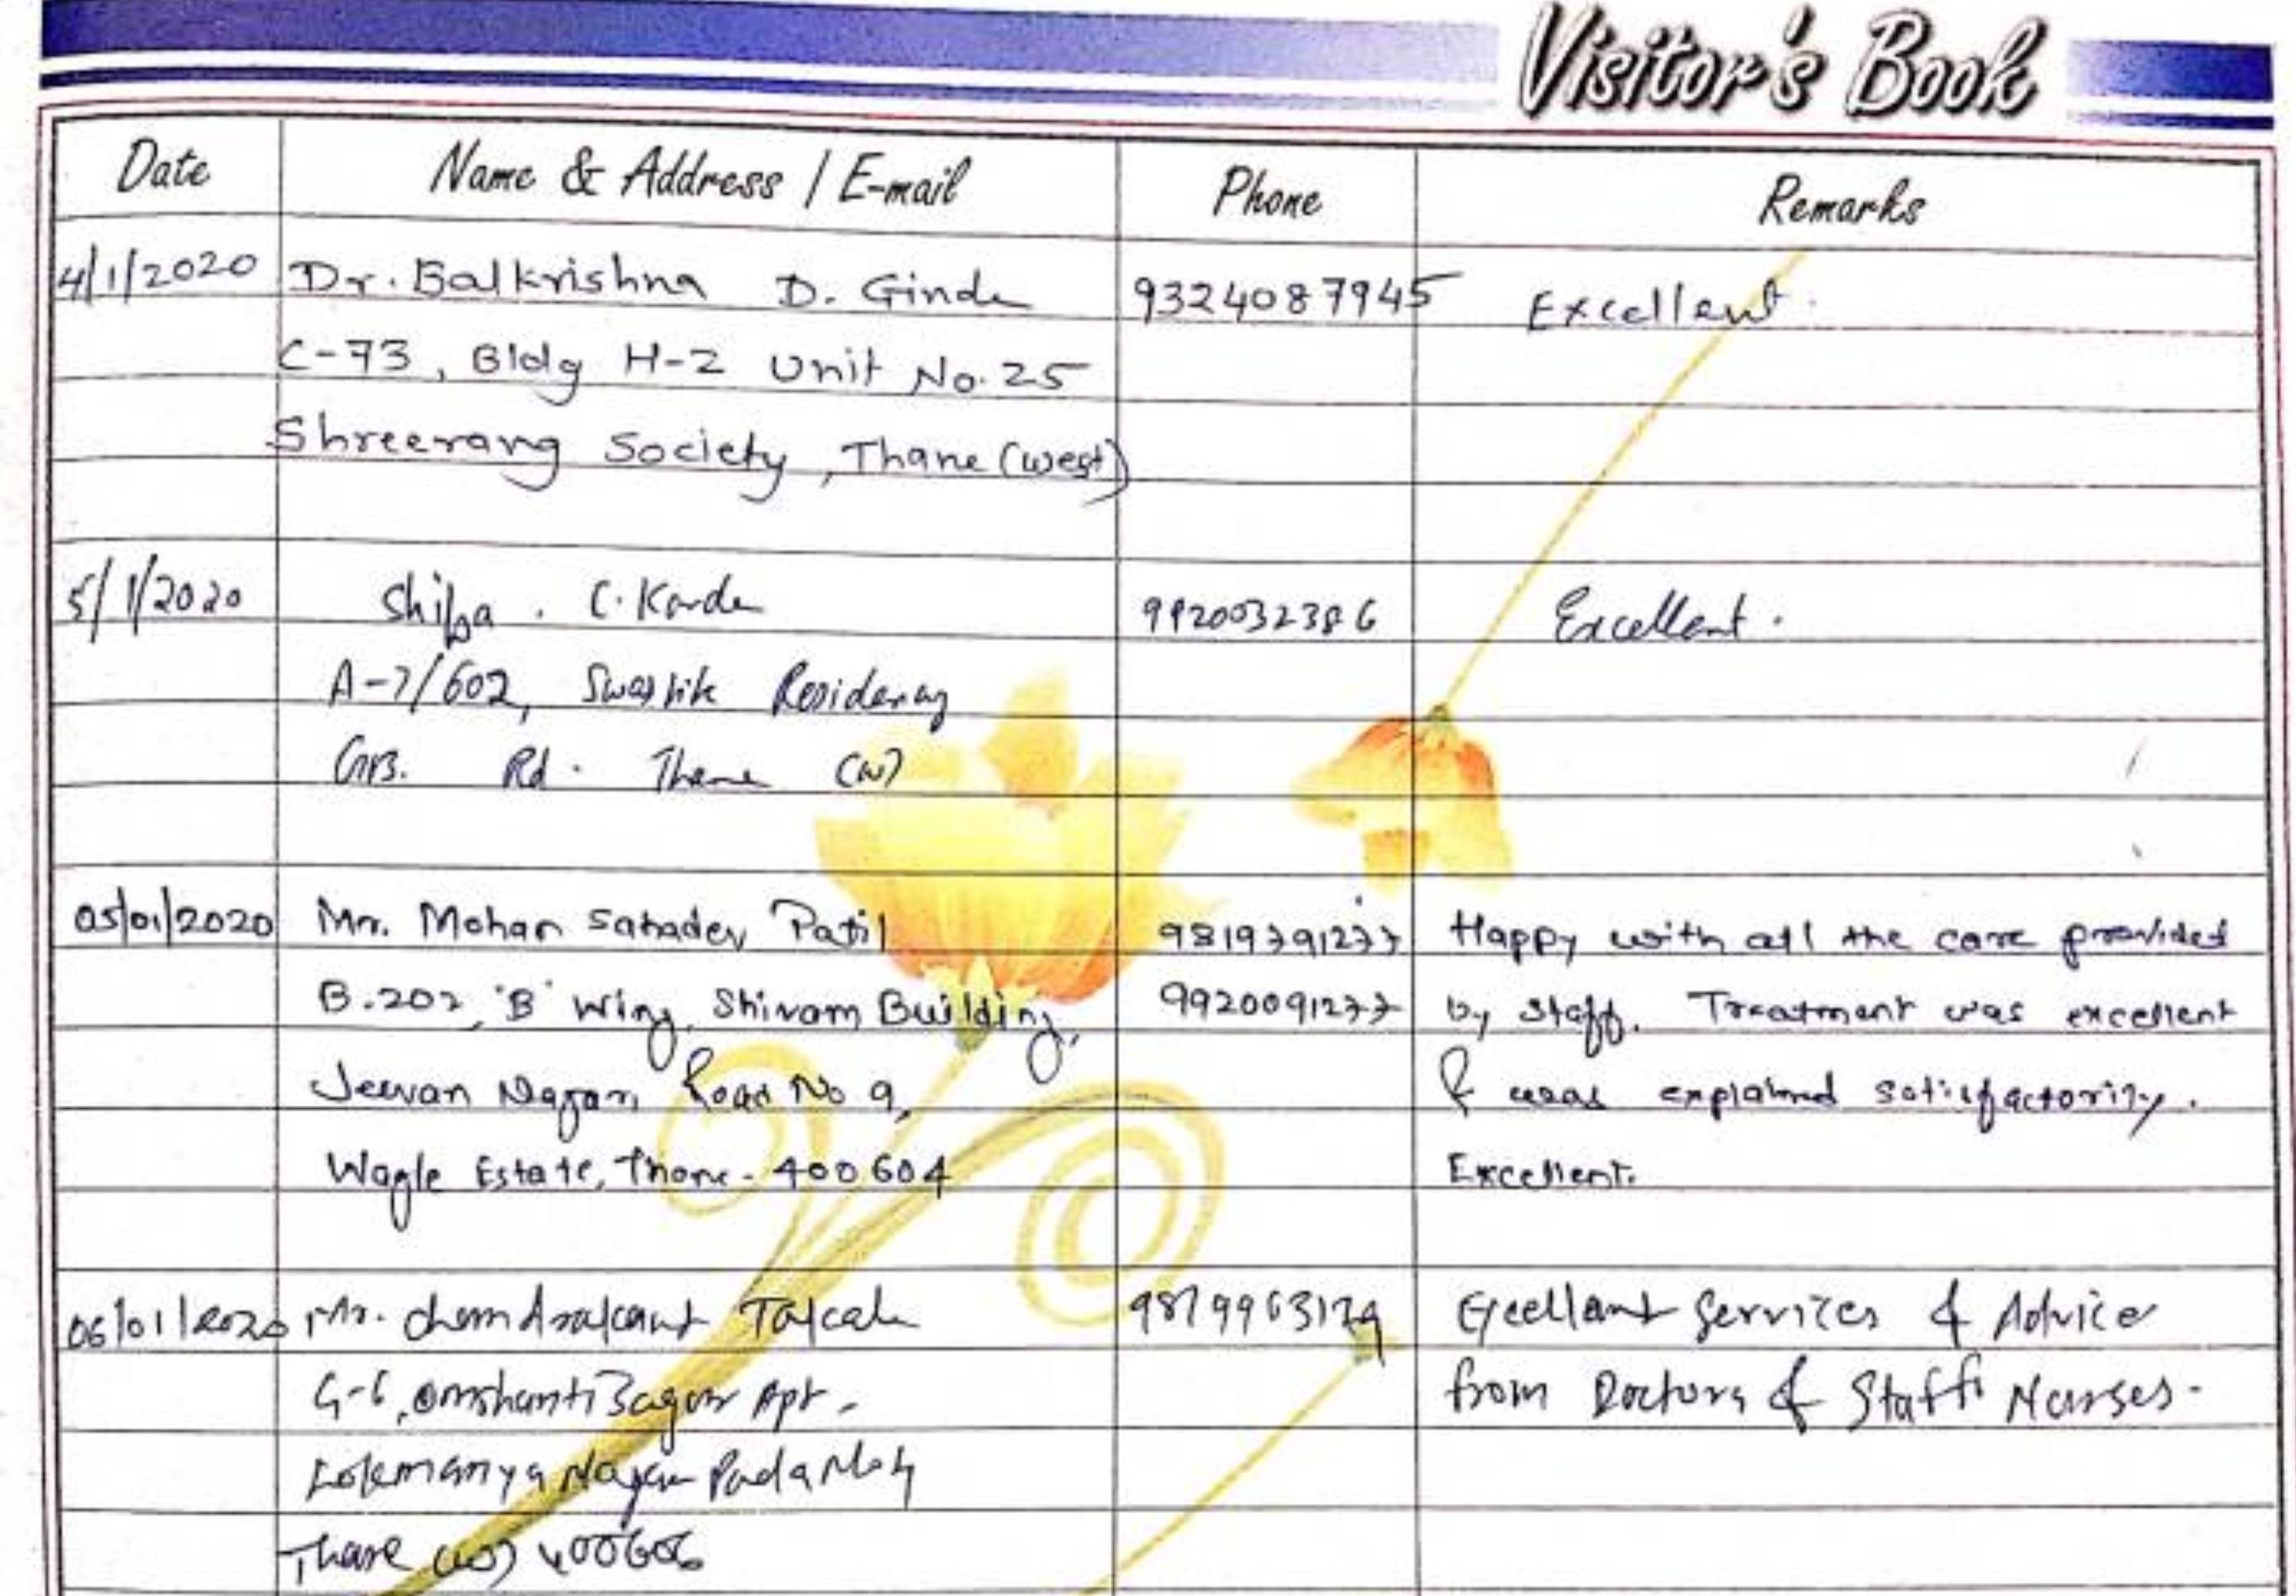 Visitor's Book
Date Name & Address / E-mail Phone Remarks
4/1/2020 Dr. Balkrishna D. Ginde 9324087945 Excellent.
C-73, Bldg H-2 Unit No. 25
Shreerang Society, Thane (west)
5/1/2020 Shilpa . C. Karde 9920032386 Excellent.
A-7/602, Swastik Residency
GB. Rd. Thane (W)
05/01/2020 Mr. Mohan Sahadev Patil 9819791277 Happy with all the care provided
B.202, 'B' Wing, Shivam Building, 9920091277 by staff. Treatment was excellent
Jeevan Nagar, Road No 9, & was explained satisfactorily.
Wagle Estate, Thane - 400604 Excellent.
06/01/2020 Mr. Chandrakant Excellant Services & Advice
Apt. from Doctors & Staff Nurses.
Lokmanya Nagar Pada No. 4
Thane (W) 400606